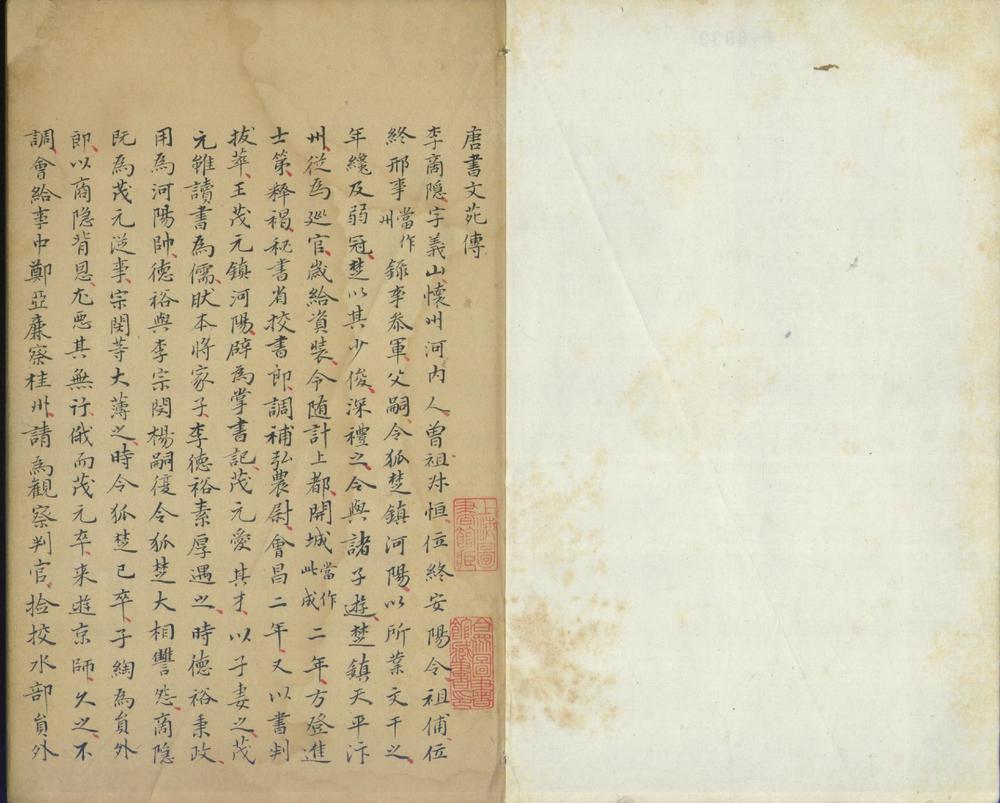 唐書文苑傳
李商隱字義山懷州河内人曾祖叔恒位終安陽令祖俌位
終邢事當作州錄事叅軍父嗣令狐楚鎮河陽以所業文干之
年纔及弱冠楚以其少俊深禮之令與諸子遊楚鎮天平汴
州從爲巡官歲給資裝令随計上都開城當作此成二年方登進
士第釋褐秘書省挍書郎調補弘農尉會昌二年又以書判
拔萃王茂元鎮河陽辟爲掌書記茂元愛其才以子妻之茂
元雖讀書爲儒肰本将家子李德裕素厚遇之時德裕秉政
用爲河陽帥德裕與李宗閔楊嗣復令狐楚大相讐怨商隱
既爲茂元從事宗閔等大薄之時令狐楚已卒子綯爲貟外
郎以商隐背恩尤惡其無行俄而茂元卒来遊京師久之不
調會給事中鄭亞廉察桂州請爲觀察判官捡挍水部貟外
上海圖書館藏
合眾圖書館藏書印